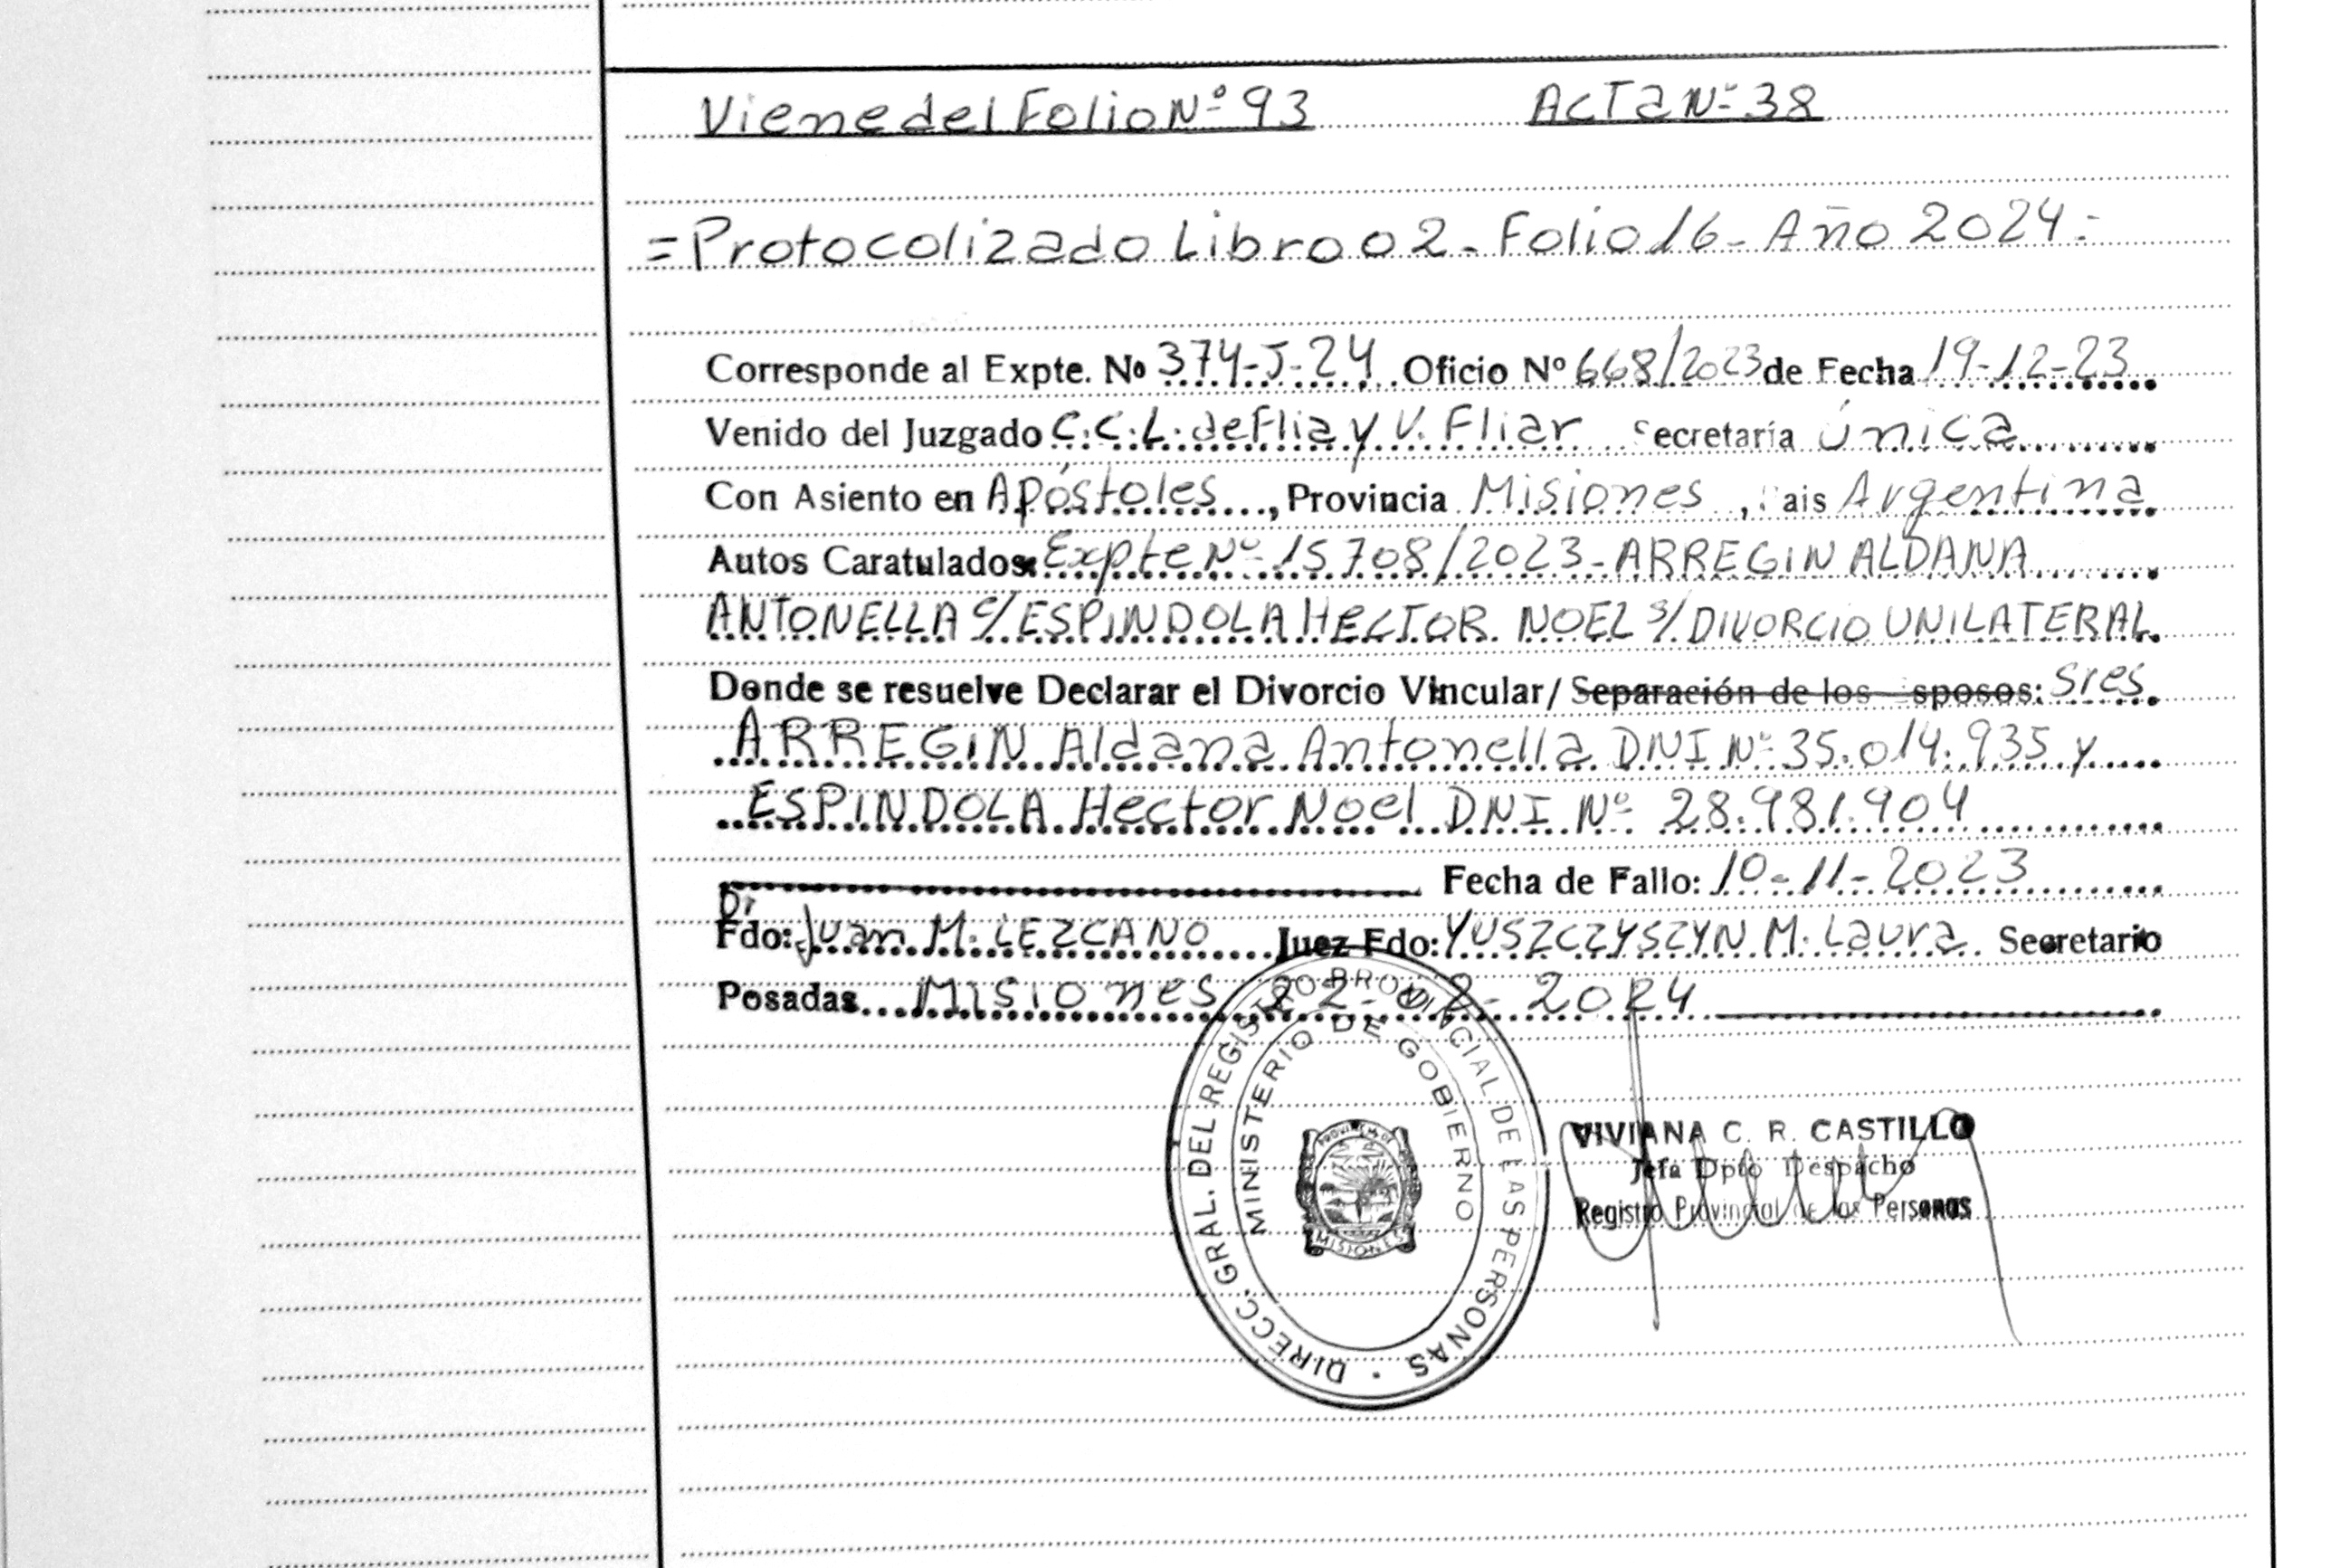 Viene del Folio Nº 93 ACTA Nº 38
= Protocolizado Libro 02 - Folio 16 - Año 2024 =
Corresponde al Expte. Nº 374-J-24 Oficio Nº 668/2023 de Fecha 19-12-23
Venido del Juzgado C.C.L. de Flia y V. Fliar Secretaría Única
Con Asiento en Apóstoles, Provincia Misiones, Pais Argentina
Autos Caratulados: Expte Nº 15708/2023 - ARREGIN ALDANA
ANTONELLA c/ ESPINDOLA HECTOR NOEL s/ DIVORCIO UNILATERAL.
Donde se resuelve Declarar el Divorcio Vincular/ Separación de los esposos: Sres
ARREGIN Aldana Antonella DNI Nº 35.014.935 y
ESPINDOLA Hector Noel DNI Nº 28.981.904
Fecha de Fallo: 10-11-2023
Dr
Fdo: Juan M. LEZCANO Juez Fdo: YUSZCZYSZYN M. Laura Secretario
Posadas Misiones 22-02-2024
DIRECC. GRAL. DEL REGISTRO PROVINCIAL DE LAS PERSONAS
MINISTERIO DE GOBIERNO
MISIONES
VIVIANA C. R. CASTILLO
Jefa Dpto Despacho
Registro Provincial de las Personas